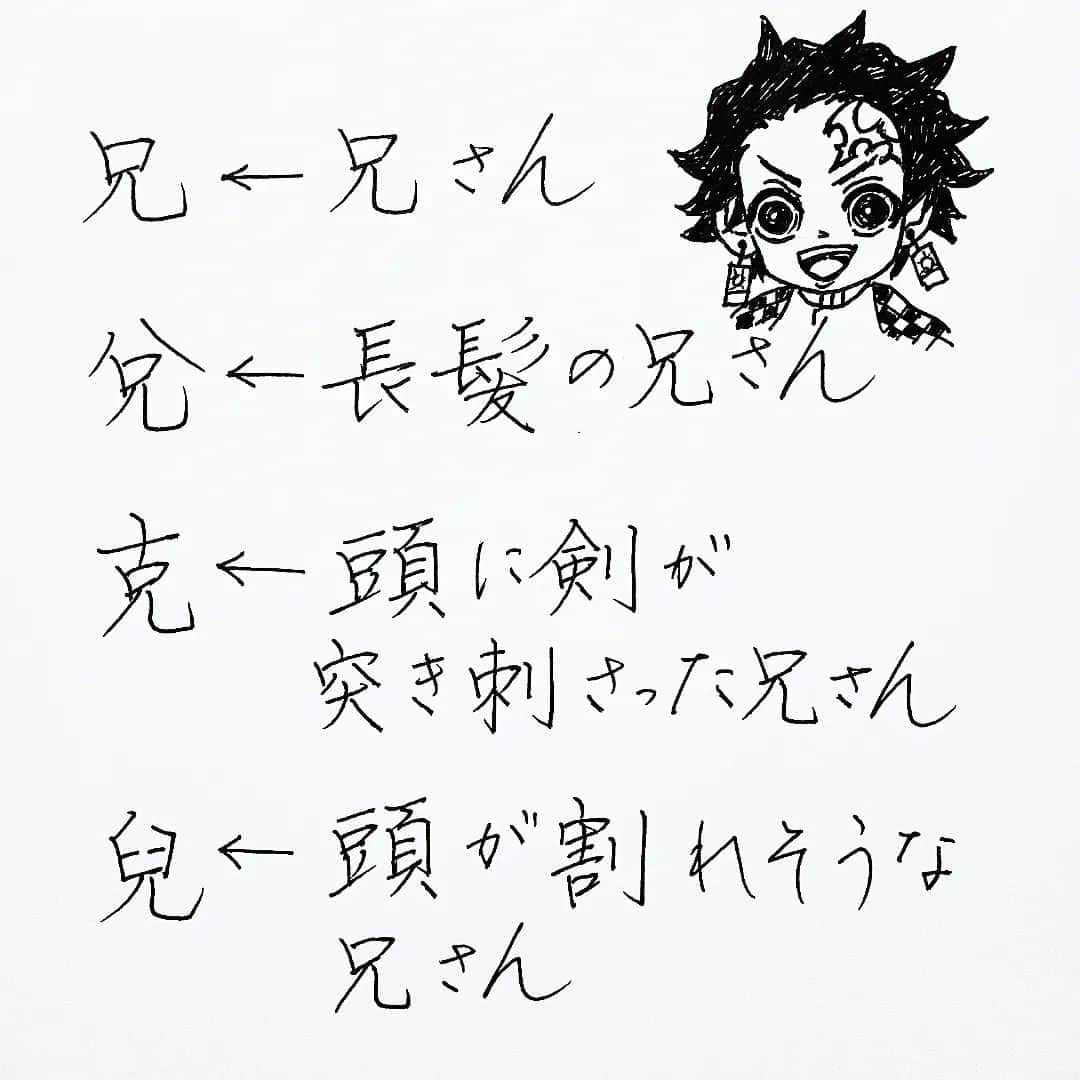 兄←兄さん
兌←長髪の兄さん
克←頭に剣が
突き刺さった兄さん
兒←頭が割れそうな
兄さん